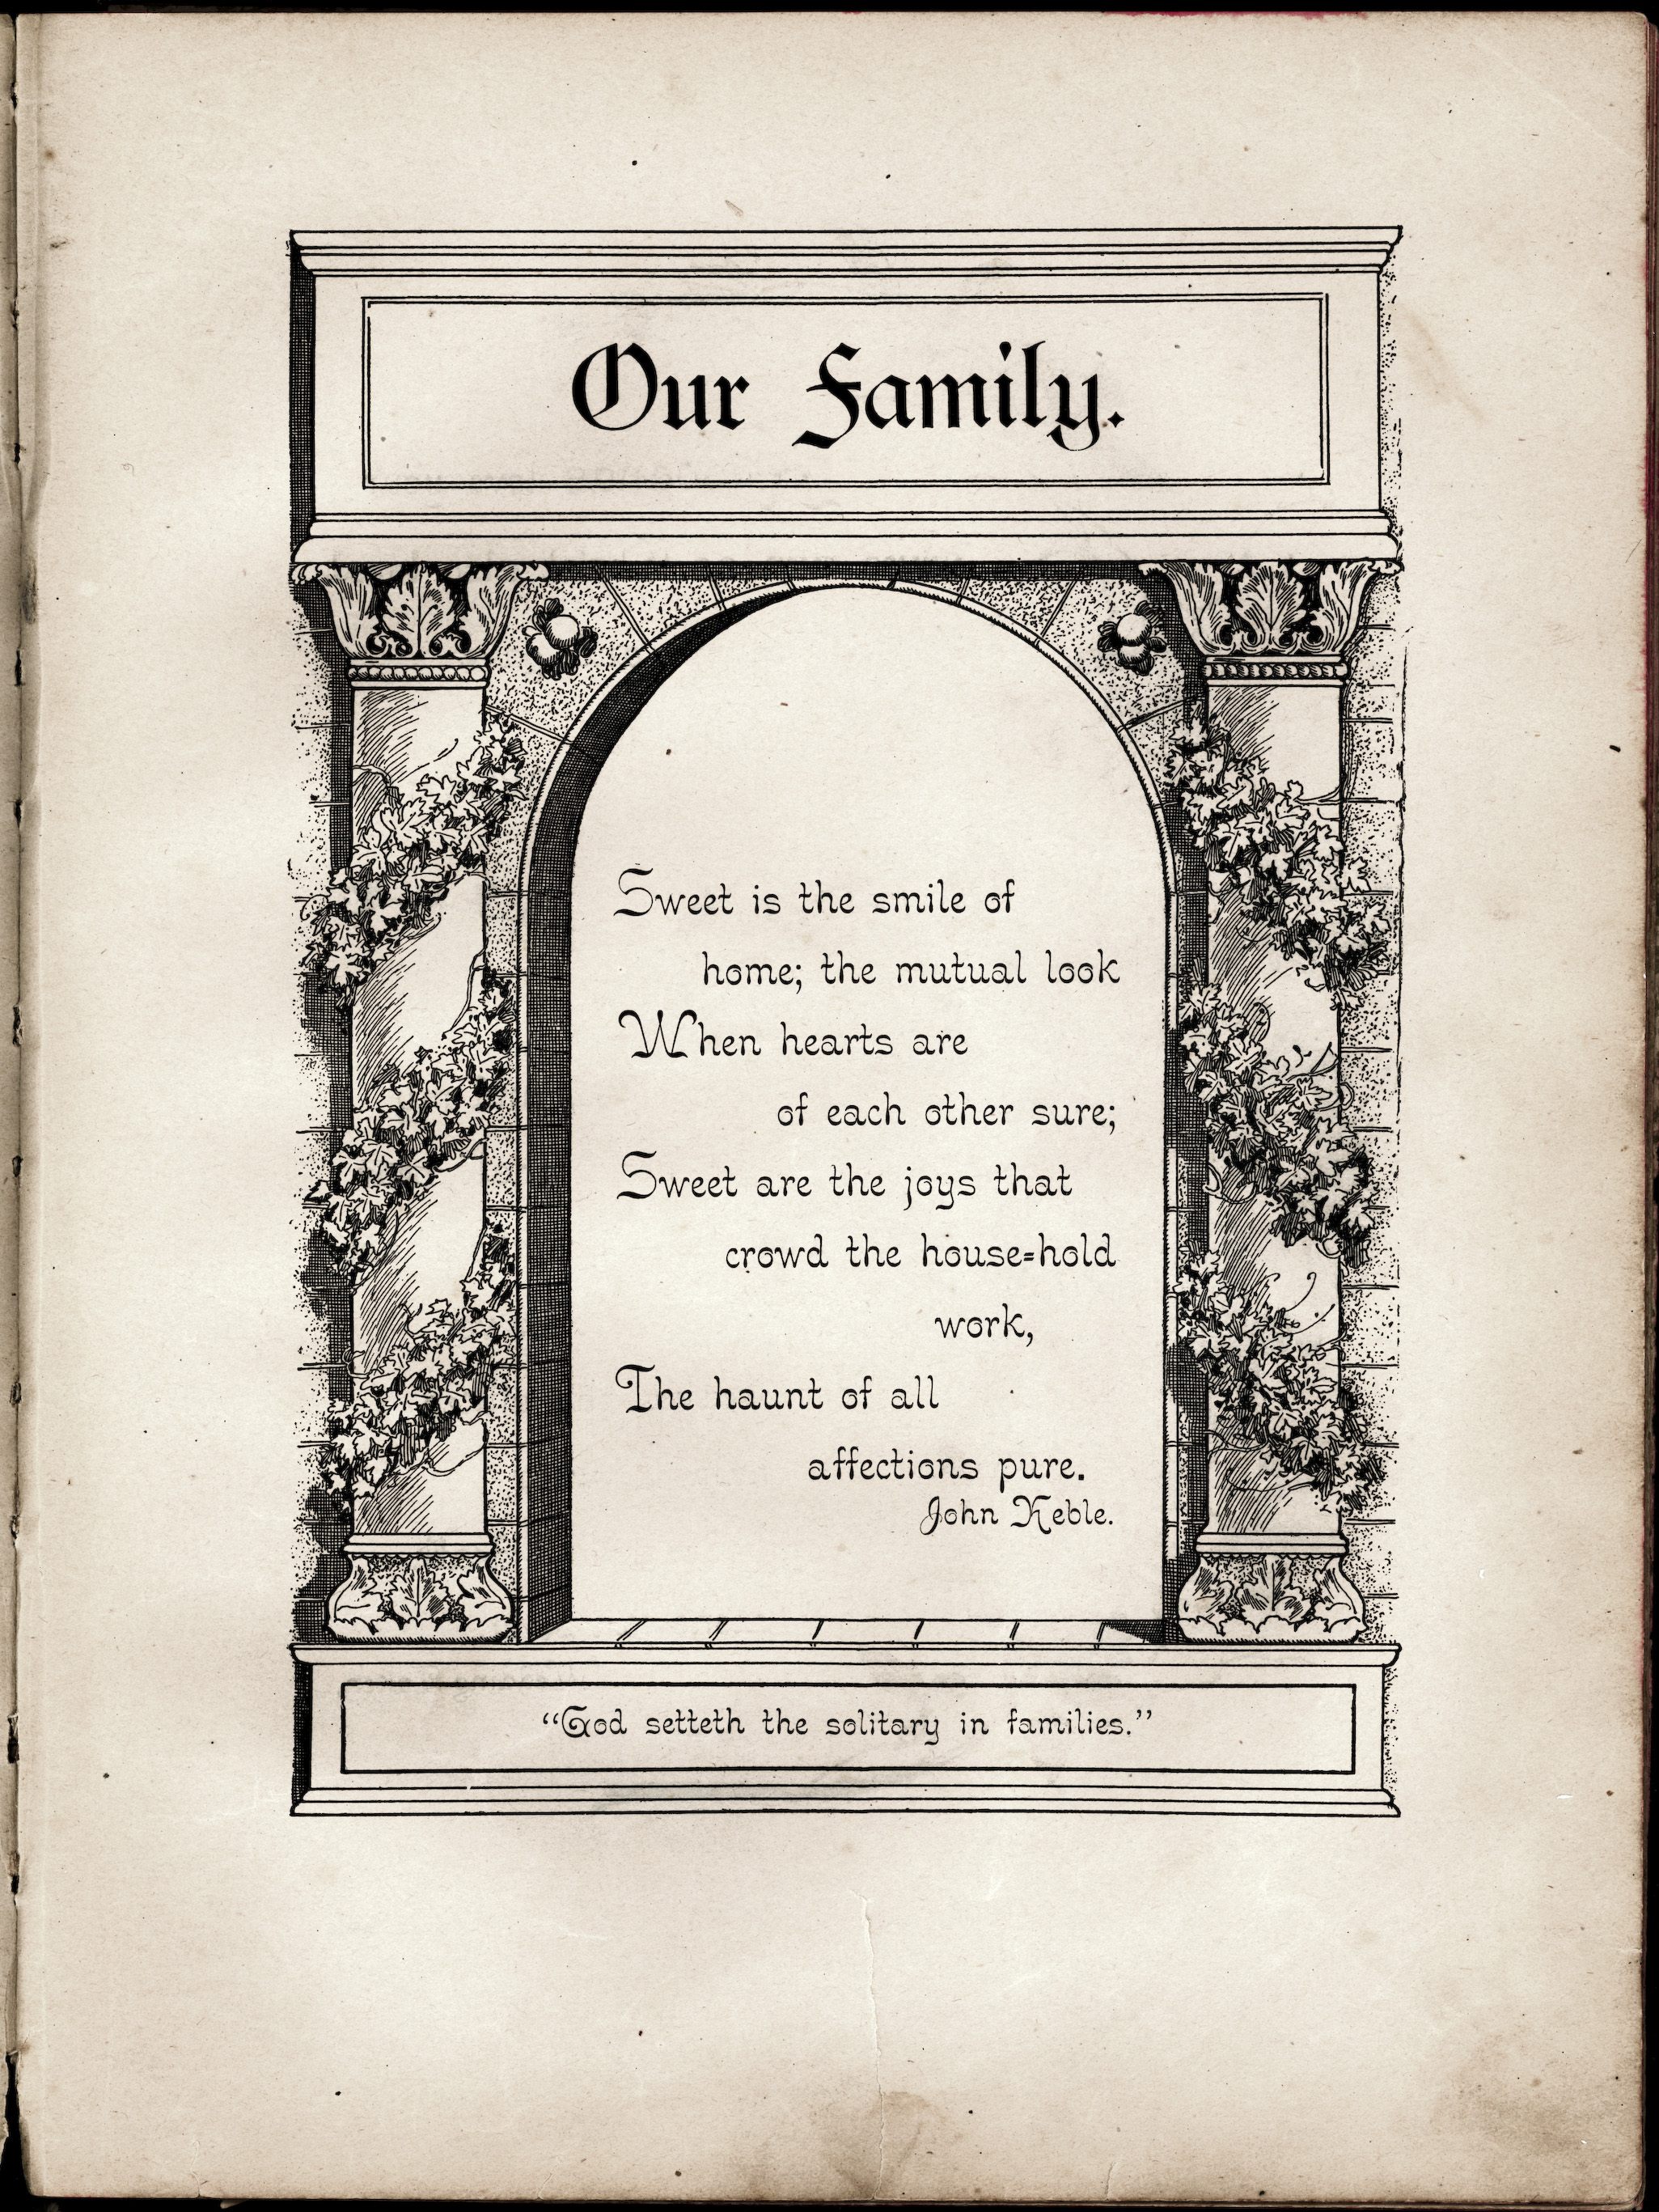 Our Family.
Sweet is the smile of
home; the mutual look
When hearts are
of each other sure;
Sweet are the joys that
crowd the house=hold
work,
The haunt of all
affections pure.
John Keble.
“God setteth the solitary in families.”